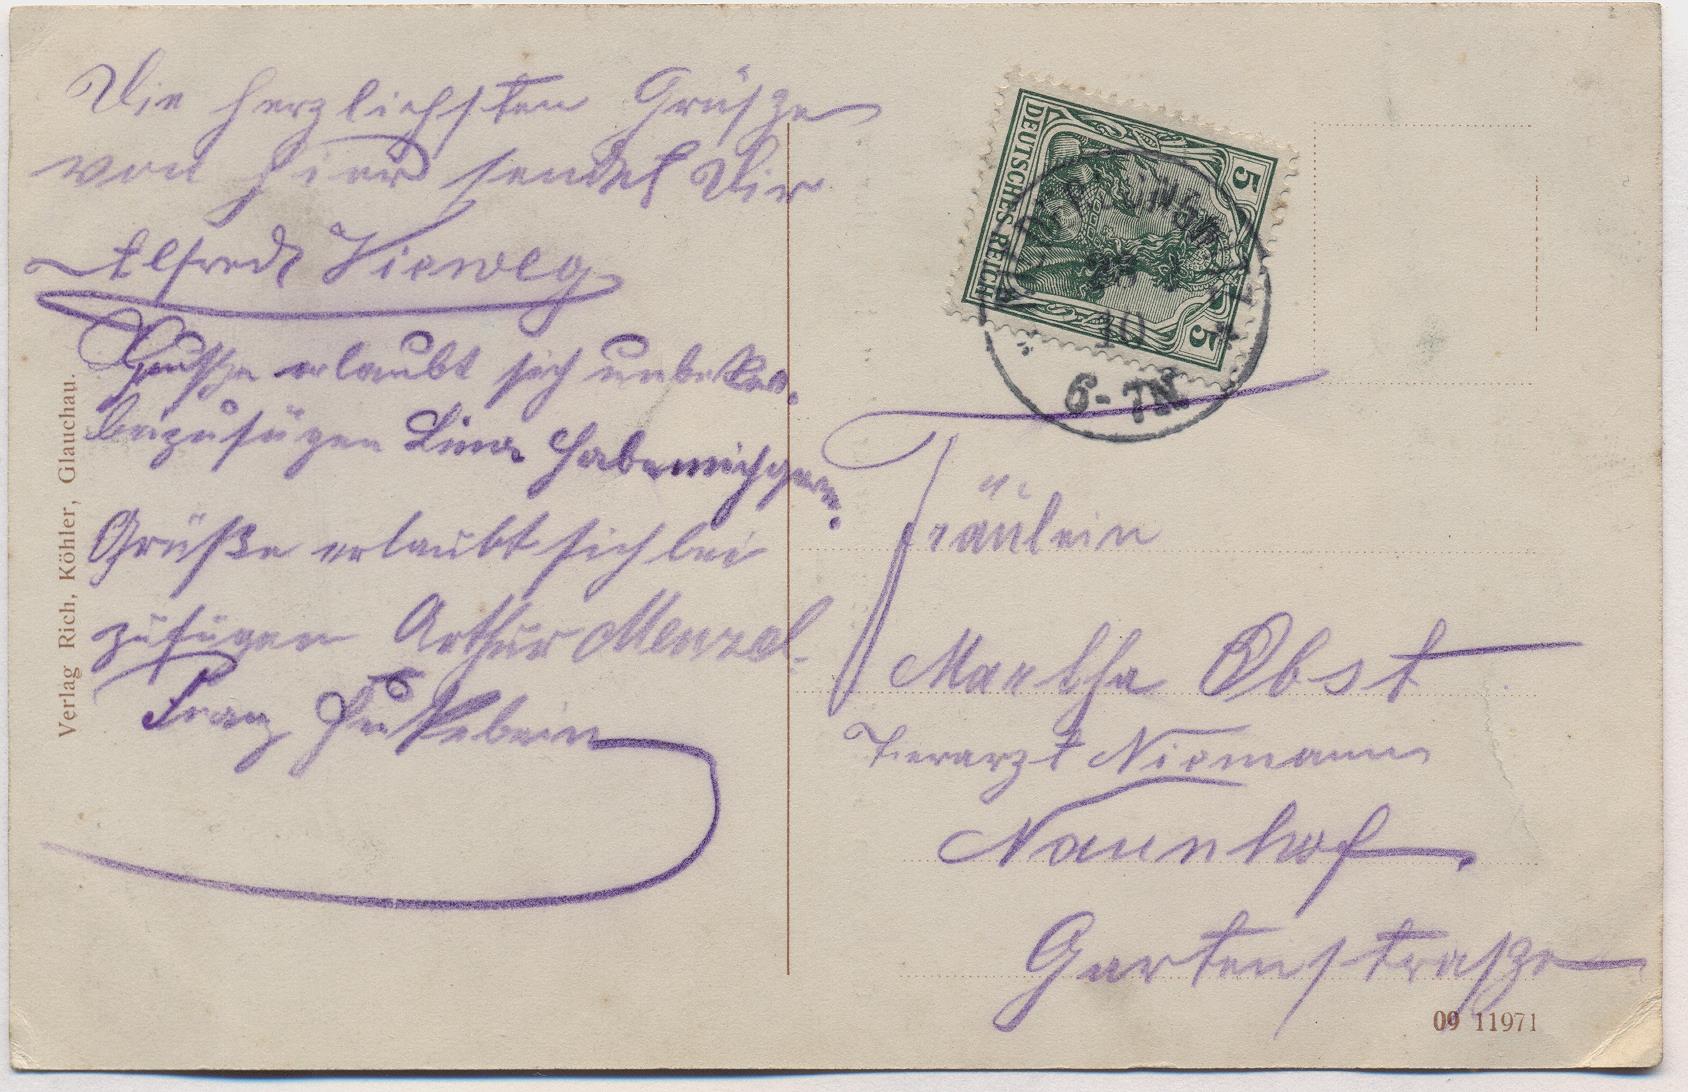 Die herzlichsten Grüsze
von hier sendet Dir
Alfred Vieweg
Grüsze erlaubt sich unbekan.
beizufügen Lina Habemichgern.
Grüße erlaubt sich bei
zufügen Arthur Menzel.
Franz
Verlag Rich. Köhler, Glauchau.
DEUTSCHES REICH
5
5
10
6-7N
Fräulein
Martha Obst
Tierarzt Niemann
Naunhof.
Gartenstrasze
09 11971